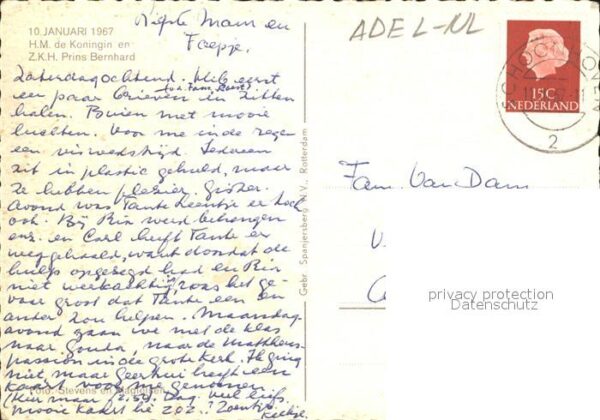 Liefste Mam en
Foepje.
ADEL-NL
10 JANUARI 1967
H.M. de Koningin en
Z.K.H. Prins Bernhard
15 C
NEDERLAND
2
Zaterdagochtend. Heb eerst
een paar brieven in zitten
halen. Buien met mooie
luchten. Voor me in de regen
een viswedstrijd. Iedereen
zit in plastic gehuld, maar
ze hebben plezier.
avond was Tante er
ook. Bij Rix werd behangen
enz. en Carl heeft Tante er
weggehaald, want doordat de
hulp opgezegd had en Rix
niet was het ge-
vaar groot dat Tante een en
ander zou helpen. Maandag-
avond gaan we met de klas
naar Gouda, naar de Mattheus-
passion in die grote kerk. Ik ging
niet maar heeft een
kaart voor me genomen
Dag. Veel liefs.
mooie kaart hè
Fam. Van Dam
Gebr. Spanjersberg N.V., Rotterdam
Foto: Stevens en Magielsen
privacy protection
Datenschutz